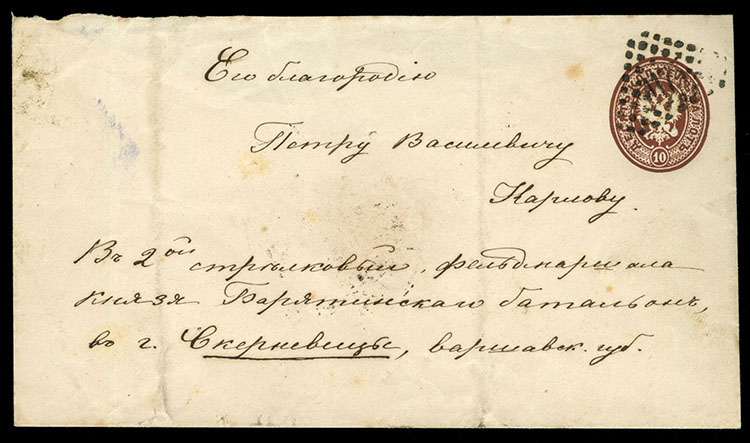 Его благородію
Петру Василевичу
Карлову.
Въ 2ой стрѣлковый, фельдмаршала
князя Барятинскаго баталіонъ,
въ г. Скерневицы, варшавск. губ.
10